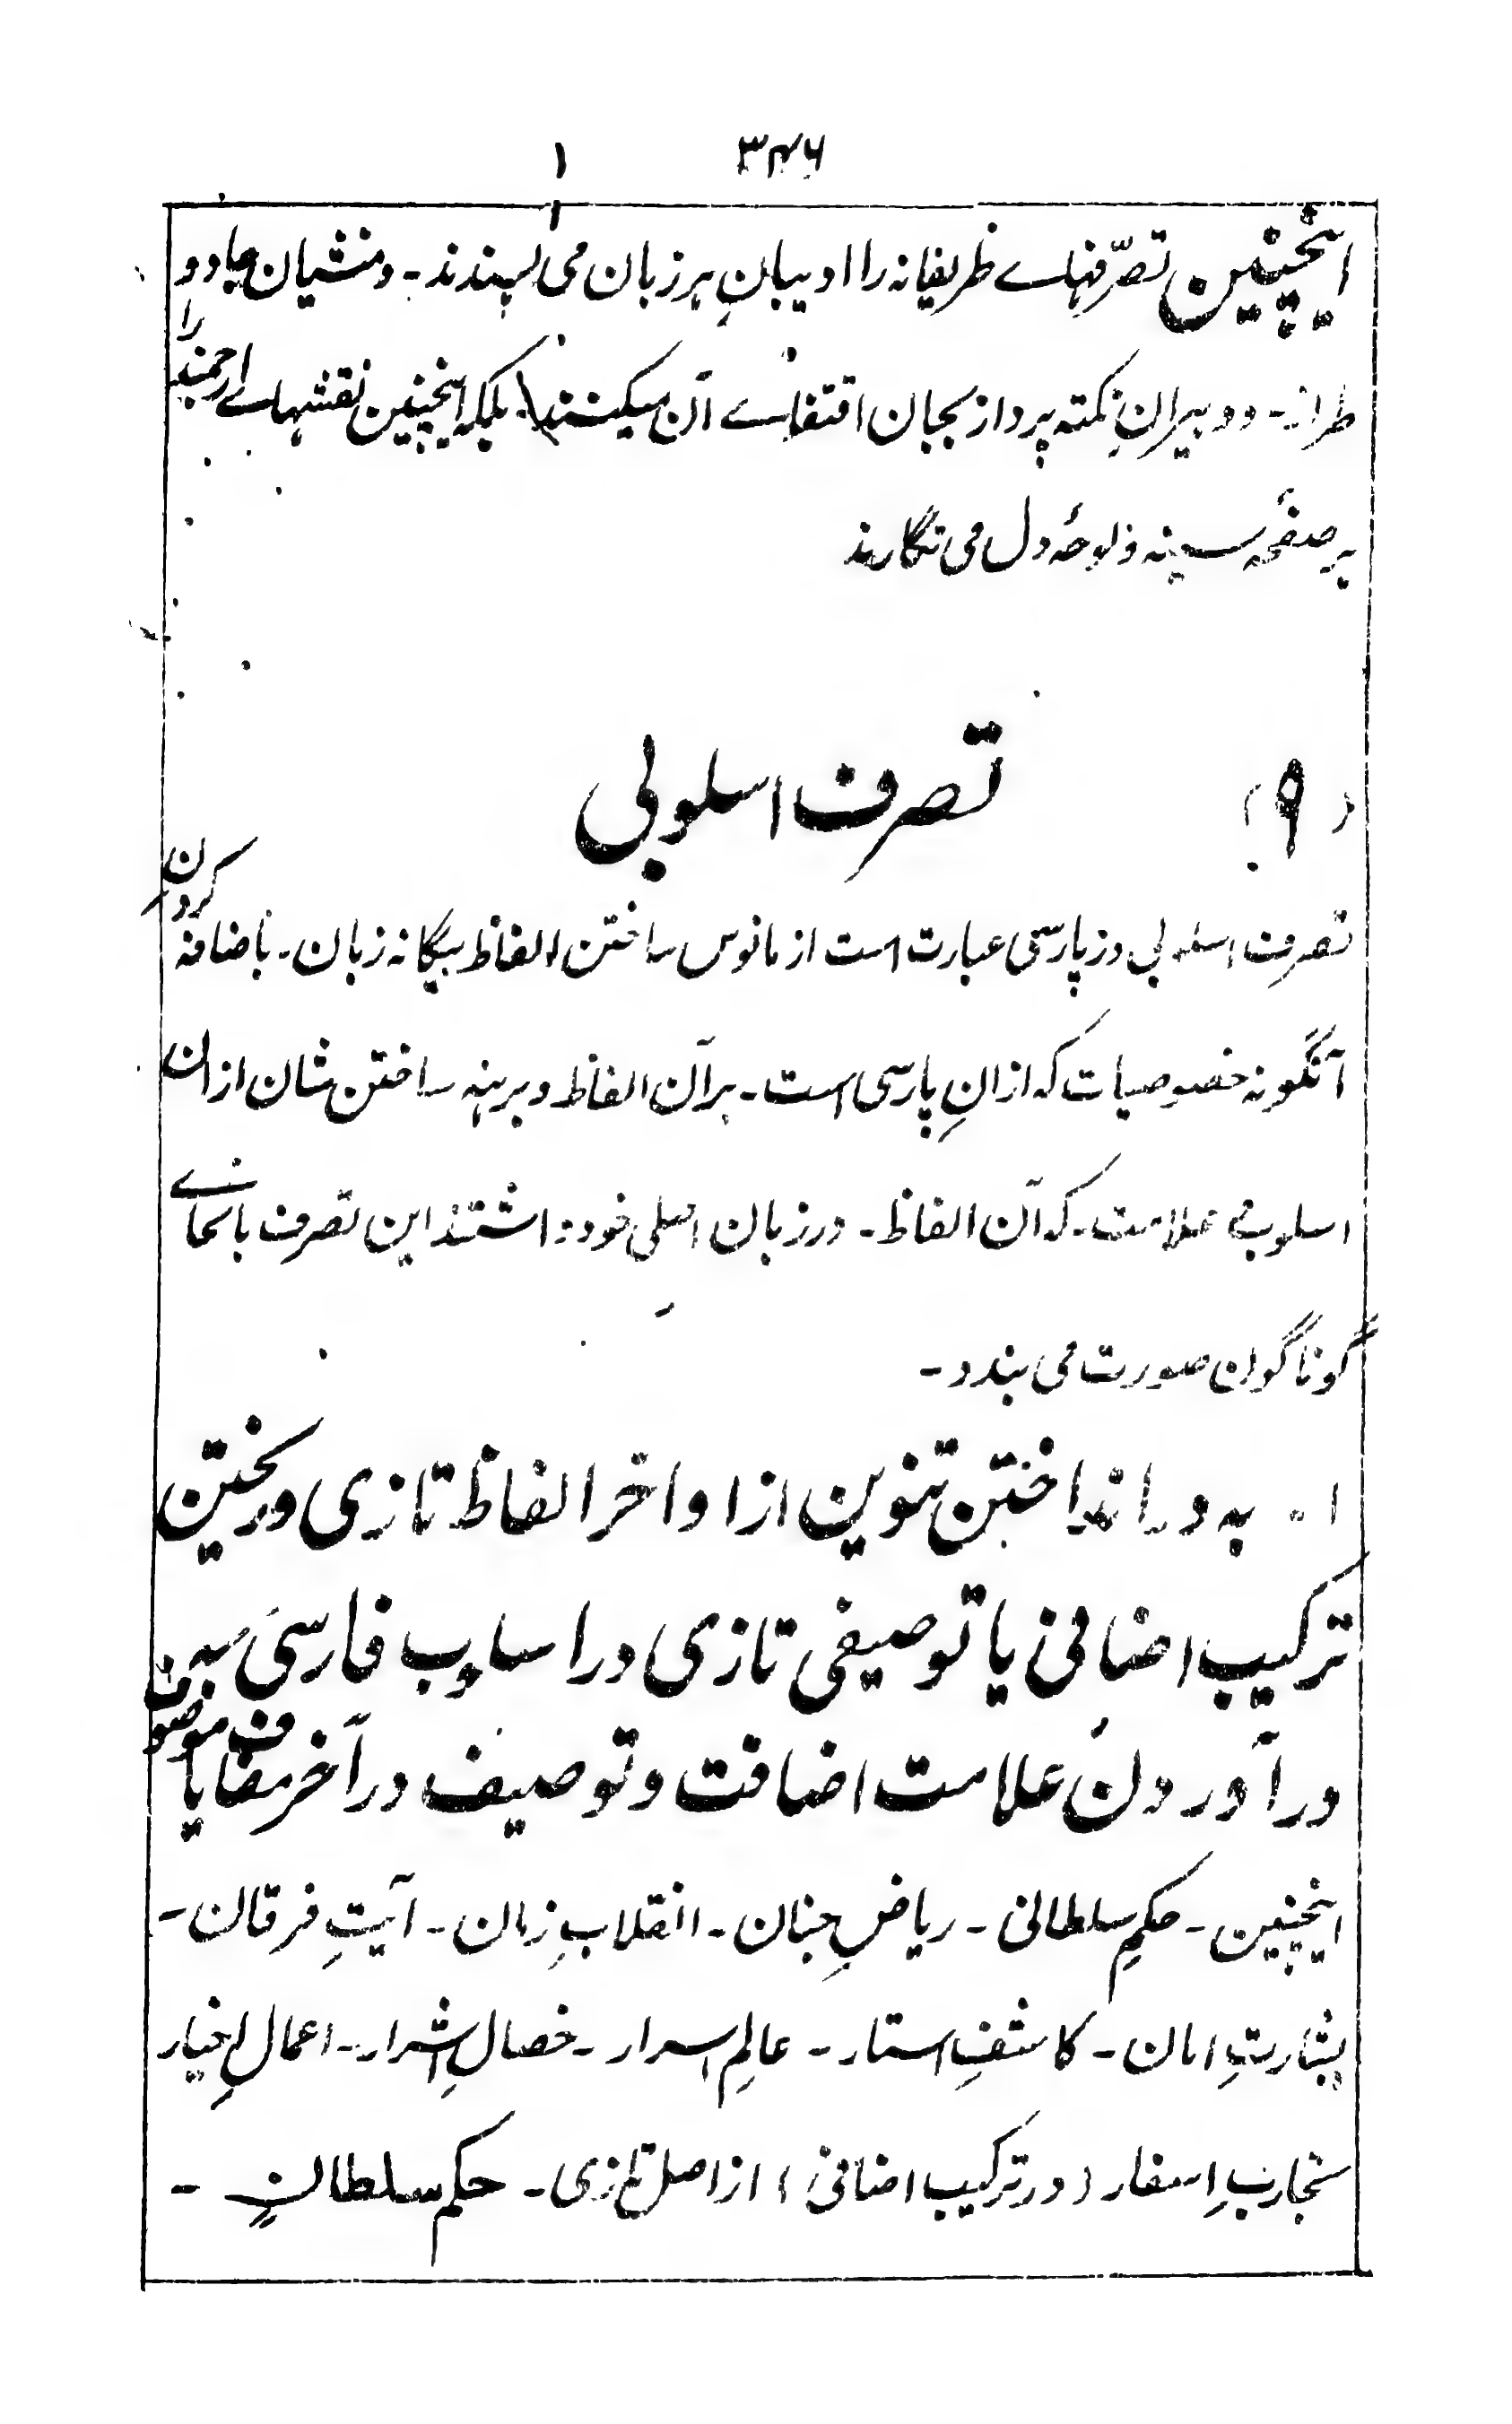 ۳۴۶
اینچنین تصرّفہاے ظریفانہ را ادیبانِ ہر زبان می پسندند ۔ و منشیان جادو
طراز ۔ و دبیرانِ نکتہ پرداز بجان اقتفاے آن میکنند ۔ بلکہ اینچنین نقشہاے ارجمند را
بر صفحۂ سینہ و لوحۂ دل می نگارند
(۹) تصرف اسلوبی
تصرف اسلوبی در پارسی عبارت است از مانوس ساختن الفاظ بیگانہ زبان ۔ باضافہ کردن
آنگونہ خصوصیات کہ ازانِ پارسی است ۔ بر آن الفاظ و برہنہ ساختن شان ازان
اسلوب علامت ۔ کہ آن الفاظ ۔ در زبان اصلی خود داشتند این تصرف بانحاے
گوناگون صورت می بندد ۔
۱۔ بہ دور انداختن تنوین از اواخر الفاظ تازی و ریختن
ترکیب اضافی یا توصیفی تازی در اسلوب فارسی بہ
درآوردن علامت اضافت و توصیف در آخر مضاف یا موصوف
اینچنین ۔ حکمِ سلطانی ۔ ریاضِ جنان ۔ انقلابِ زمان ۔ آیتِ فرقان ۔
بشارتِ امان ۔ کاشفِ استار ۔ عالمِ اسرار ۔ خصالِ اشرار ۔ اعمالِ اخیار
تجاربِ اسفار (در ترکیب اضافی) از اصل تازی ۔ حکم سلطانٍ ۔